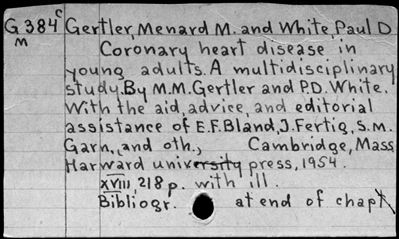 G 384c Gertler, Menard M. and White, Paul D.
M Coronary heart disease in
young adults. A multidisciplinary
study. By M.M. Gertler and P.D. White.
With the aid, advice, and editorial
assistance of E.F. Bland, J. Fertig, S.M.
Garn, and oth., Cambridge, Mass
Harward university press, 1954.
XVIII, 218 p. with ill.
Bibliogr. at end of chapt